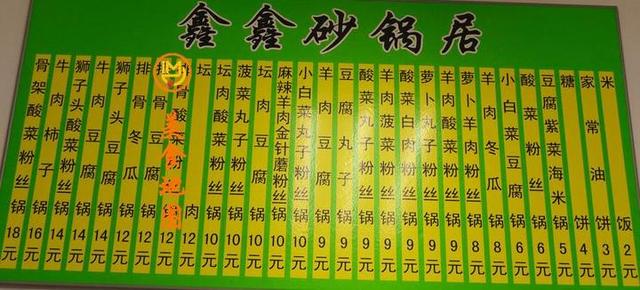 鑫鑫砂锅居
骨架酸菜粉丝锅18元
牛肉柿子锅16元
狮子头酸菜粉丝锅14元
牛肉豆腐锅14元
狮子头豆腐锅12元
排骨冬瓜锅12元
骨豆锅12元
骨酸菜肉12元
坛肉酸菜粉丝锅10元
菠菜丸子粉丝锅10元
坛肉豆腐锅10元
麻辣羊肉金针蘑粉丝锅10元
小白菜丸子粉丝锅10元
羊肉豆腐锅9元
豆腐丸子锅9元
酸菜丸子粉丝锅9元
羊肉菠菜粉丝锅9元
酸菜白肉粉丝锅9元
萝卜丸子粉丝锅9元
萝卜羊肉粉丝锅8元
羊肉冬瓜锅8元
小白菜豆腐锅6元
豆腐紫菜海米锅5元
糖饼4元
家常油饼3元
米饭2元
美食地图